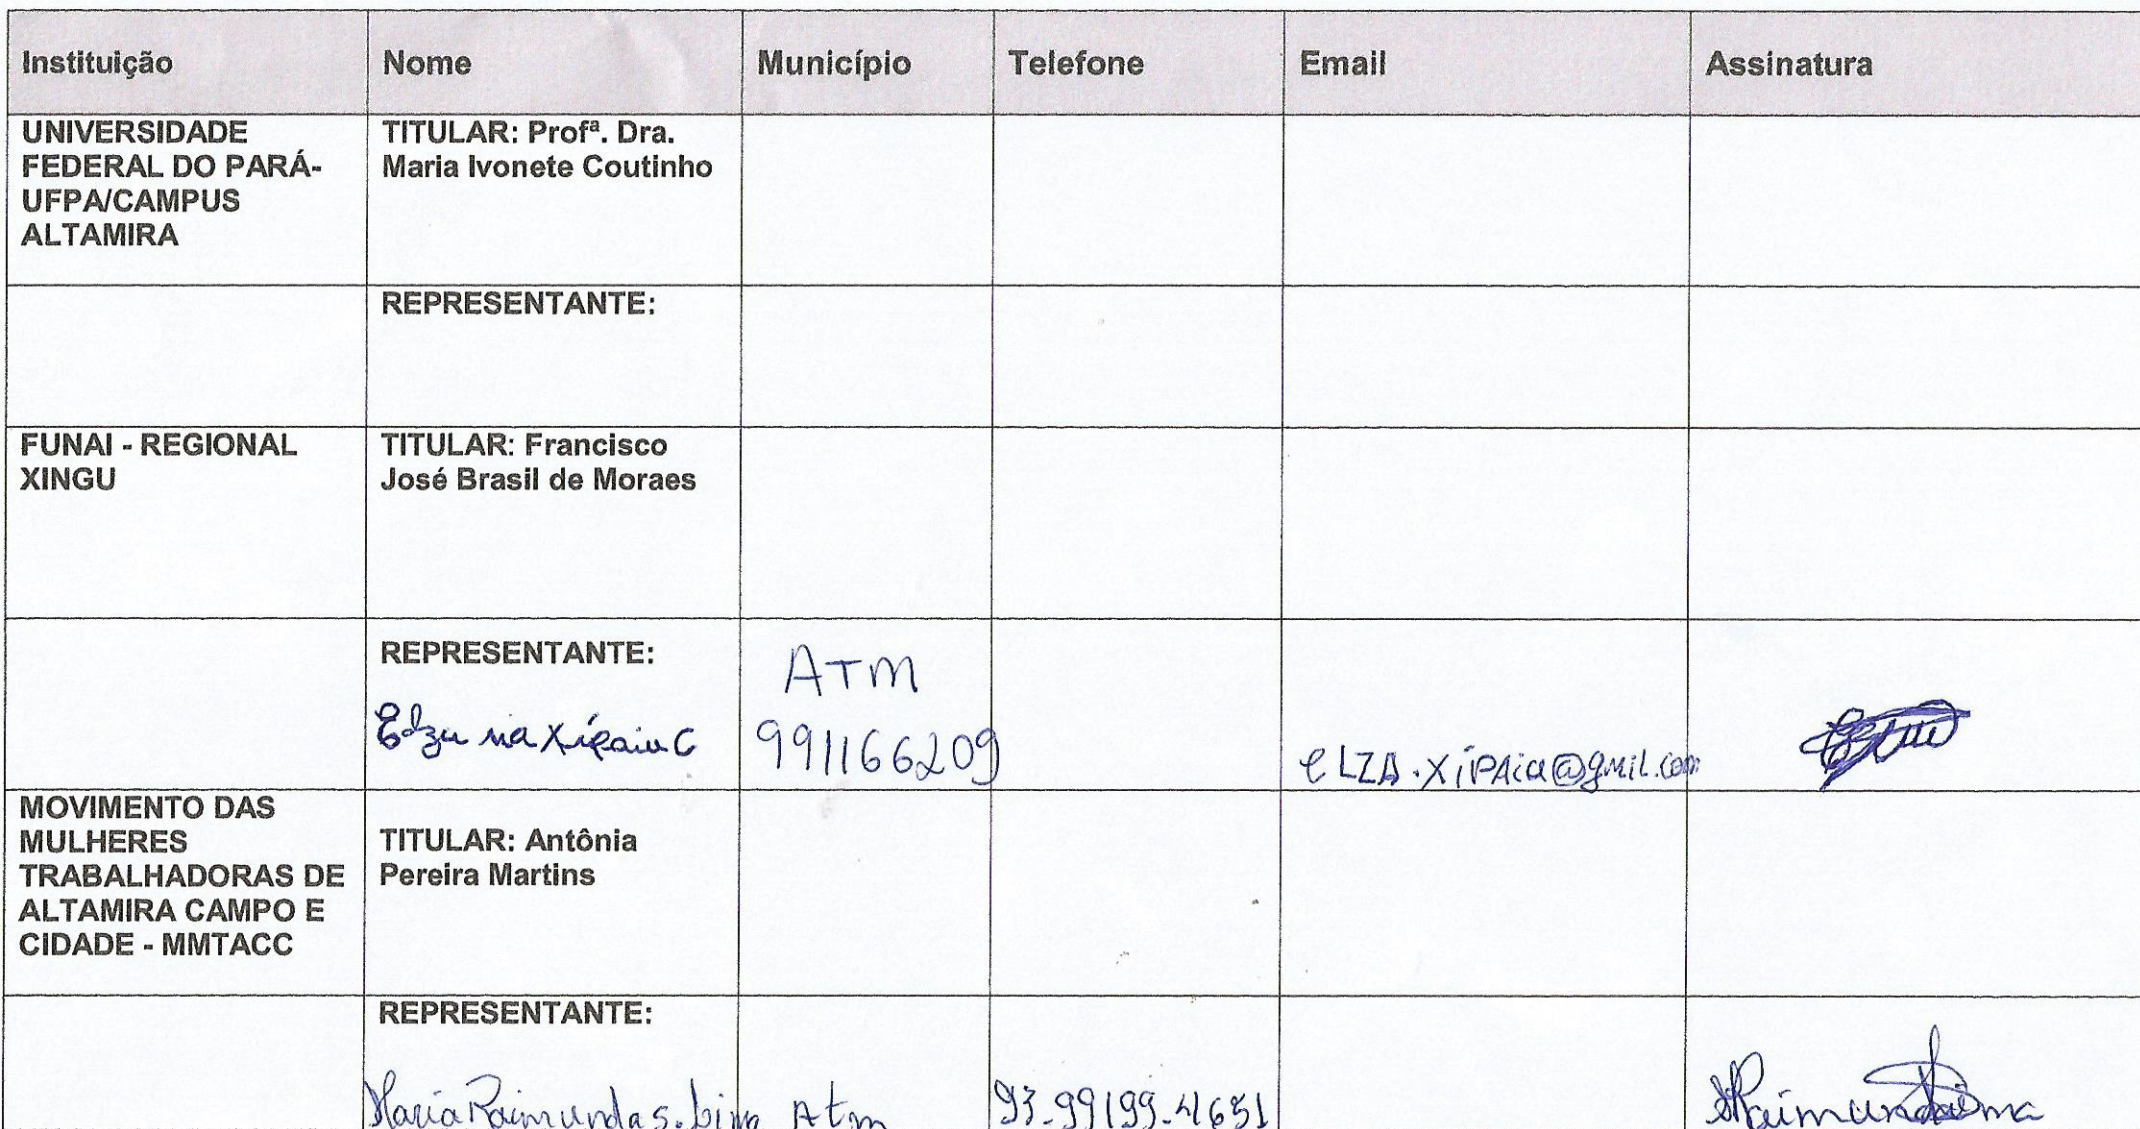 Instituição Nome Município Telefone Email Assinatura
UNIVERSIDADE
FEDERAL DO PARÁ-
UFPA/CAMPUS
ALTAMIRA
TITULAR: Profª. Dra.
Maria Ivonete Coutinho
REPRESENTANTE:
FUNAI - REGIONAL
XINGU
TITULAR: Francisco
José Brasil de Moraes
REPRESENTANTE:
Xipaia C
ATM
991166209
eLZA.XiPAia@gmil.com
MOVIMENTO DAS
MULHERES
TRABALHADORAS DE
ALTAMIRA CAMPO E
CIDADE - MMTACC
TITULAR: Antônia
Pereira Martins
REPRESENTANTE:
Maria Raimunda S. Lima Atm 93-99199-4651